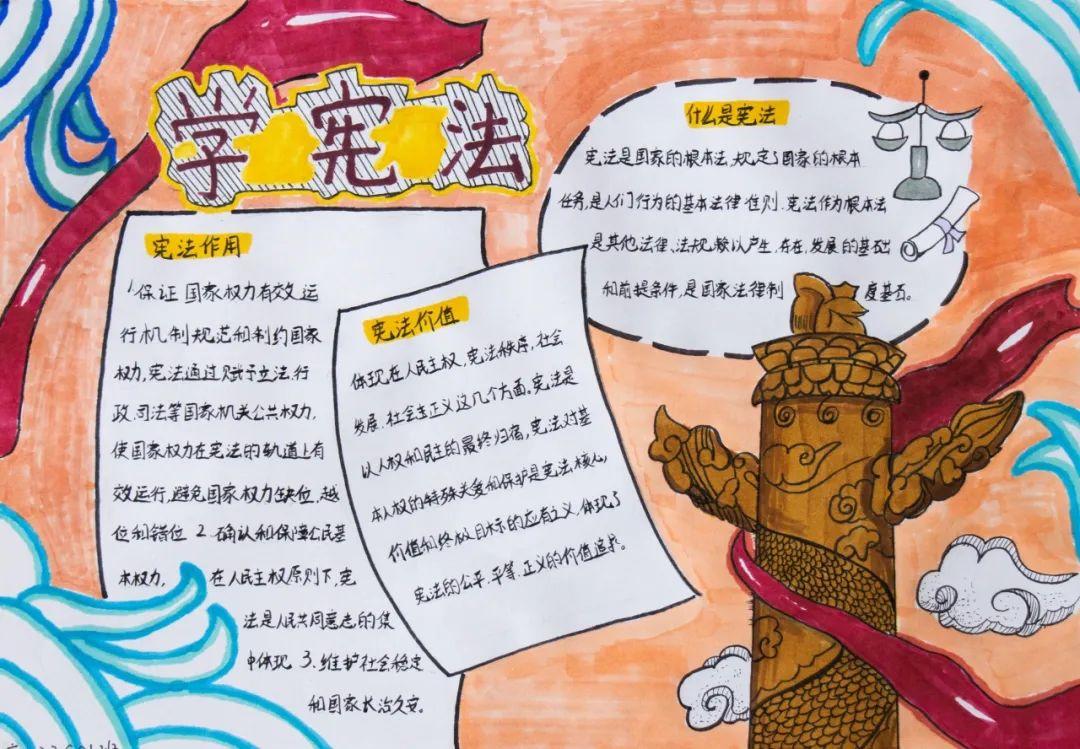 学宪法
什么是宪法
宪法是国家的根本法,规定了国家的根本
任务,是人们行为的基本法律准则.宪法作为根本法
是其他法律、法规赖以产生、存在、发展的基础
和前提条件,是国家法律制度基石。
宪法作用
1保证国家权力有效运
行机制规范和制约国家
权力,宪法通过赋予立法、行
政、司法等国家机关公共权力,
使国家权力在宪法的轨道上有
效运行,避免国家权力缺位、越
位和错位 2.确认和保障公民基
本权力, 在人民主权原则下,宪
法是人民共同意志的集
中体现 3.维护社会稳定
和国家长治久安。
宪法价值
体现在人民主权,宪法秩序,社会
发展、社会主正义这几个方面。宪法是
以人权和民主的最终归宿,宪法对基
本人权的特殊关爱和保护是宪法核心,
价值和终极目标的应有之义,体现了
宪法的公平、平等、正义的价值追求。